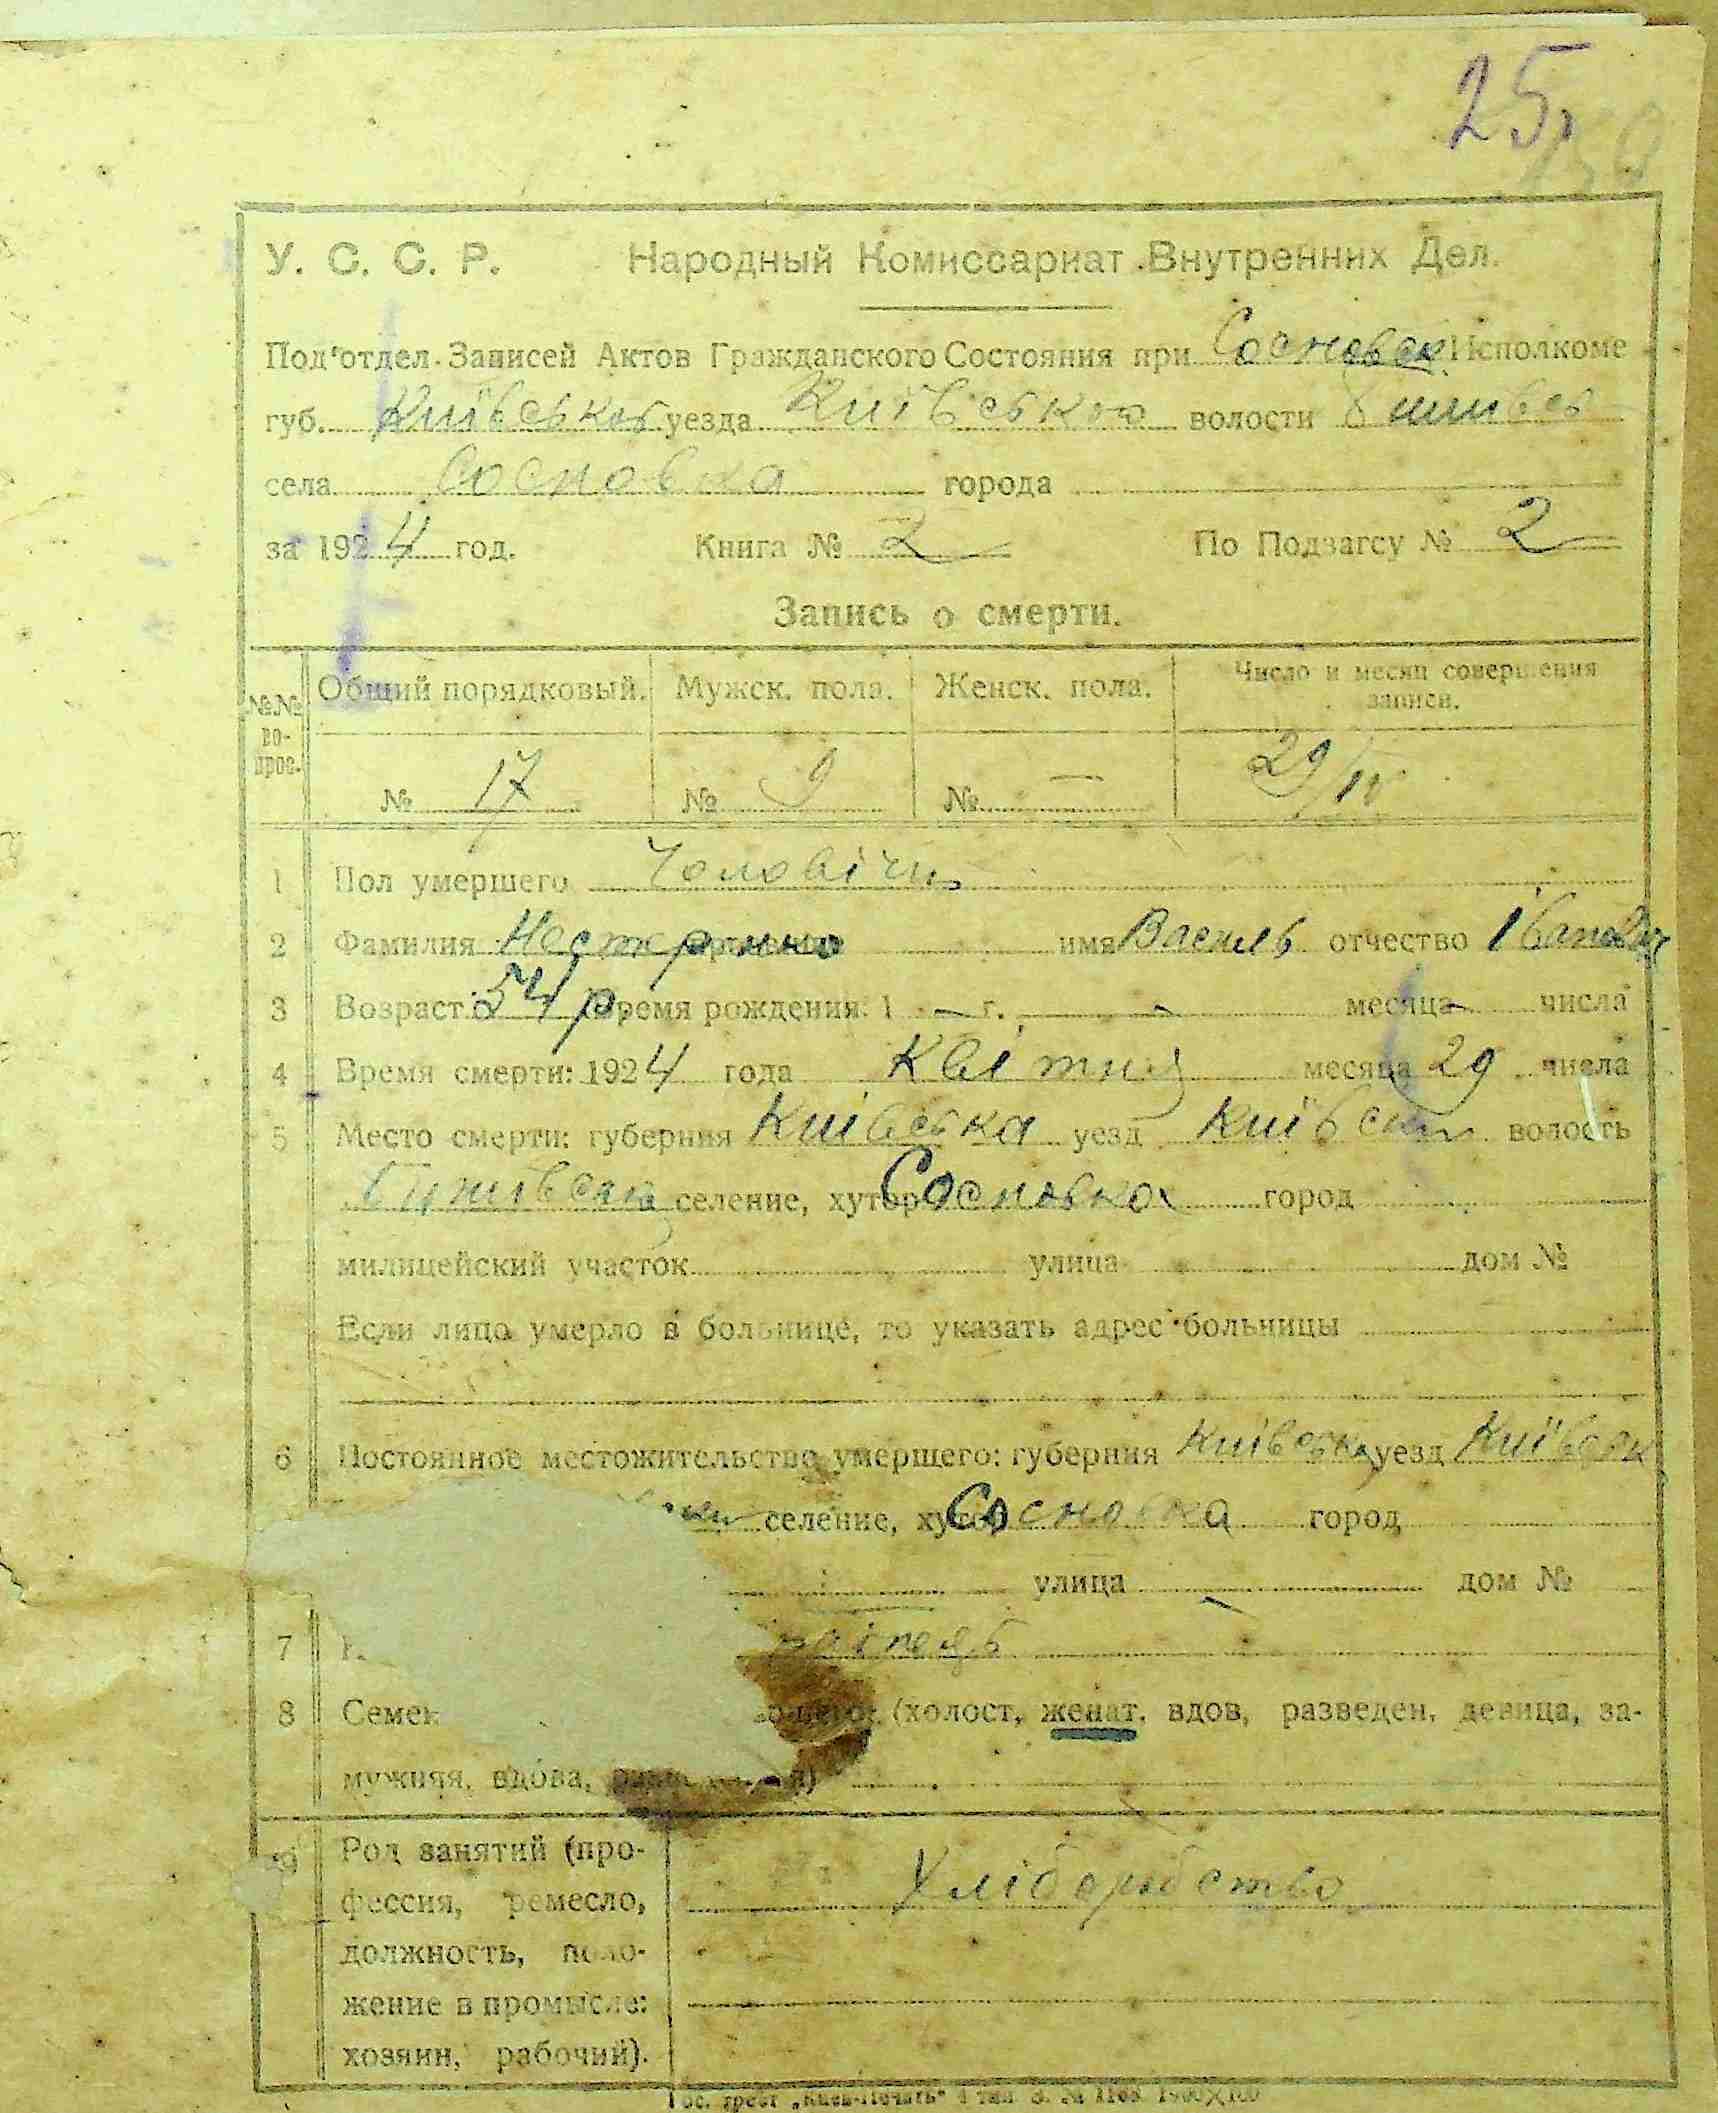 25
У. С. С. Р. Народный Комиссариат Внутренних Дел.
Под'отдел Записей Актов Гражданского Состояния при Сосновск. Исполкоме
губ. Київської уезда Київського волости
села Сосновка города
за 1924 год. Книга № 2 По Подзагсу № 2
Запись о смерти.
№№ во-прос. Общий порядковый. Мужск. пола. Женск. пола. Число и месяц совершения записи.
№ 17 № 9 № — 29/IV
1 Пол умершего Чоловічи
2 Фамилия Нестеренко имя Василь отчество Іванович
3 Возраст: 54 р. Время рождения: 1 — г. — месяца — числа
4 Время смерти: 1924 года Квітня месяца 29 числа
5 Место смерти: губерния Київська уезд Київськ волость
селение, хутор Сосновка город
милицейский участок улица дом №
Если лицо умерло в больнице, то указать адрес больницы
6 Постоянное местожительство умершего: губерния Київська уезд Київськ
селение, хутор Сосновка город
улица дом №
7
8 Семей (холост, женат, вдов, разведен, девица, за-
мужняя, вдова,
9 Род занятий (про- Хліборобство
фессия, ремесло,
должность, поло-
жение в промысле:
хозяин, рабочий).